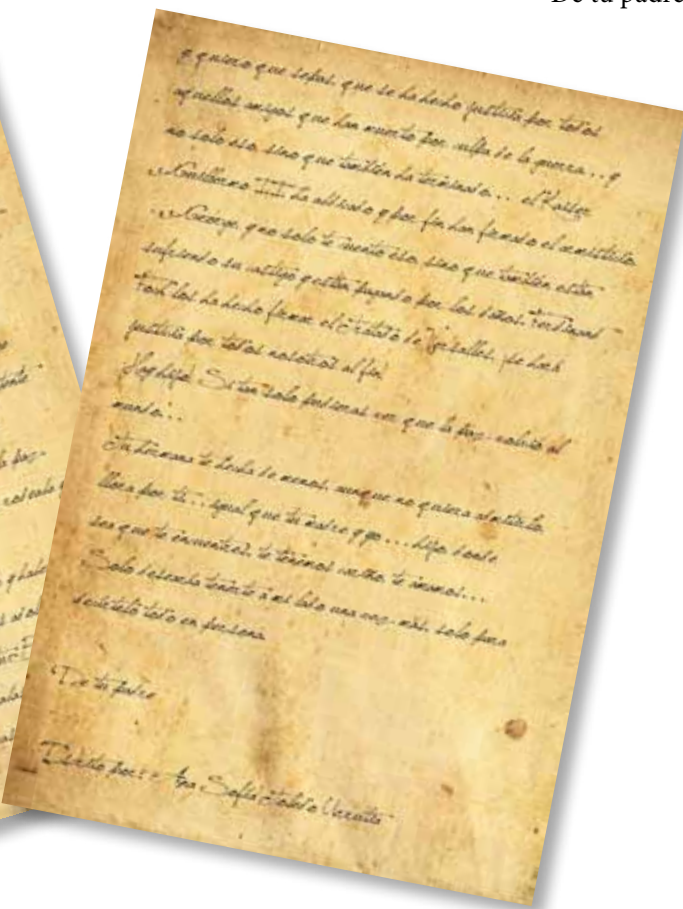 De tu padre
y quiero que sepas, que se ha hecho justicia por todos
aquellos amigos que han muerto por culpa de la guerra... y
no solo eso, sino que también ha terminado... el Kaiser
Guillermo II ha abdicado y por fin han firmado el armisticio.
George, y no solo te cuento eso, sino que también están
sufriendo su castigo y están pagando por los daños. Ferdinand
Foch los ha hecho firmar el Tratado de Versalles, se hará
justicia por todos nosotros al fin.
hijo! Si tan solo pudieras ver que la paz volvió al
mundo...
Tu hermana te hecha de menos, aunque no quiera admitirlo,
llora por ti... igual que tu madre y yo... hijo donde
sea que te encuentres, te tenemos cariño, te amamos...
Solo desearía tenerte a mi lado una vez más, solo para
decírtelo todo en persona.
De tu padre
por: Ana Sofía